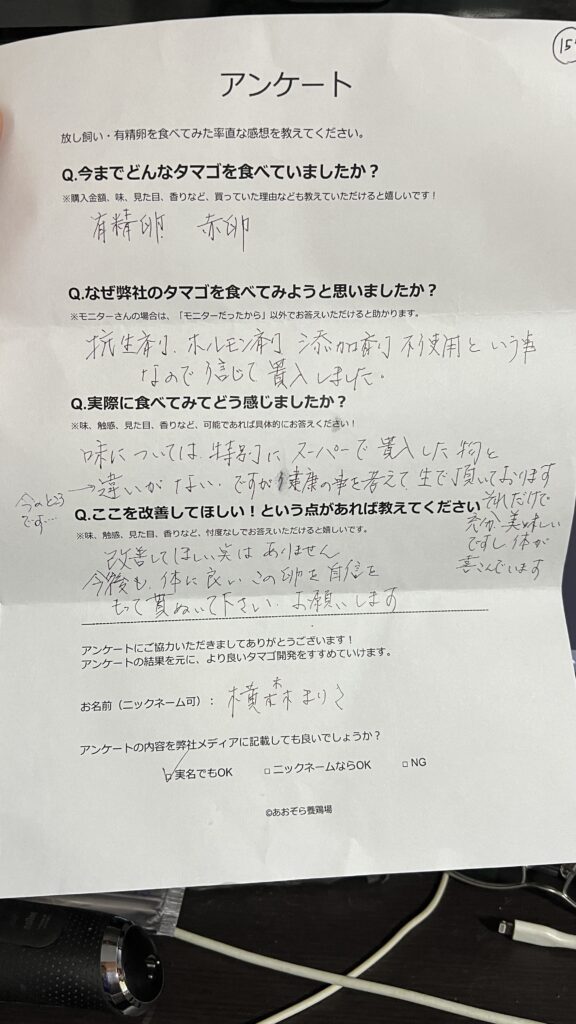 アンケート
放し飼い・有精卵を食べてみた率直な感想を教えてください。
Q.今までどんなタマゴを食べていましたか？
※購入金額、味、見た目、香りなど、買っていた理由なども教えていただけると嬉しいです！
有精卵 赤卵
Q.なぜ弊社のタマゴを食べてみようと思いましたか？
※モニターさんの場合は、「モニターだったから」以外でお答えいただけると助かります。
抗生剤、ホルモン剤 添加剤 不使用という事
なので信じて買入しました。
Q.実際に食べてみてどう感じましたか？
※味、触感、見た目、香りなど、可能であれば具体的にお答えください！
味については特別にスーパーで買入した物と
→違いがない。ですが健康の事を考えて生で頂いております
今のところ
です…
それだけで
充分美味しい
ですし体が
喜こんでいます
Q.ここを改善してほしい！という点があれば教えてください
※味、触感、見た目、香りなど、忖度なしでお答えいただけると嬉しいです。
改善してほしい点はありません
今後も、体に良いこの卵を自信を
もって貫ぬいて下さい。お願いします
アンケートにご協力いただきましてありがとうございます！
アンケートの結果を元に、より良いタマゴ開発をすすめていけます。
お名前（ニックネーム可）： 横森まりこ
アンケートの内容を弊社メディアに記載しても良いでしょうか？
□実名でもOK □ニックネームならOK □NG
©あおぞら養鶏場